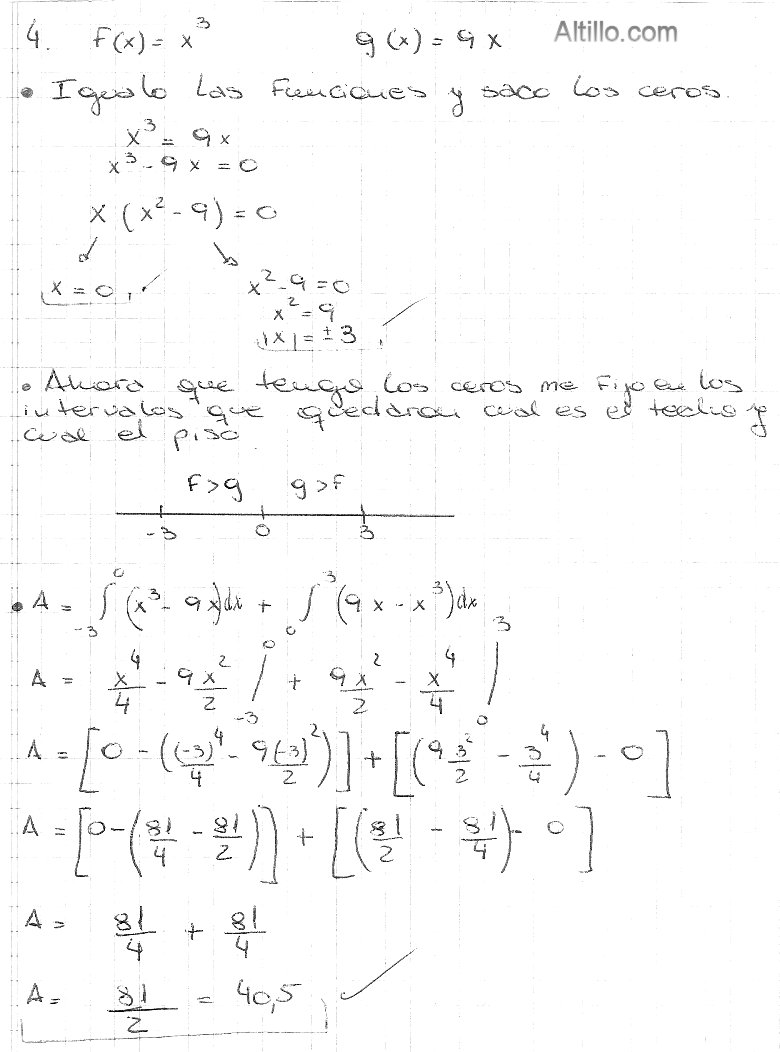 4. F(x) = x³ g(x) = 9x Altillo.com
• Igualo las Funciones y saco los ceros.
x³ = 9x
x³ - 9x = 0
x (x² - 9) = 0
x = 0
x² - 9 = 0
x² = 9
|x| = ± 3
• Ahora que tengo los ceros me Fijo en los
intervalos que quedaron cual es el techo y
cual el piso
F > g g > F
-3 0 3
• A = ∫₋₃⁰ (x³ - 9x)dx + ∫₀³ (9x - x³)dx
A = x⁴/4 - 9x²/2 /₋₃⁰ + 9x²/2 - x⁴/4 /₀³
A = [0 - ((-3)⁴/4 - 9(-3)²/2)] + [(9 3²/2 - 3⁴/4) - 0]
A = [0 - (81/4 - 81/2)] + [(81/2 - 81/4) - 0]
A = 81/4 + 81/4
A = 81/2 = 40,5